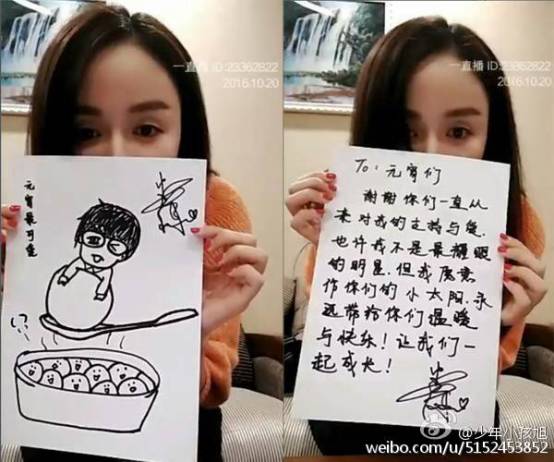 一直播 ID:23362822
2016.10.20
元宵最可爱
!?
一直播 ID:23362822
2016.10.20
To:元宵们
谢谢你们一直从
来对我的支持与爱.
也许我不是最耀眼
的明星.但我愿意
作你们的小太阳.永
远带给你们温暖
与快乐!让我们一
起成长!
@少年小孩旭
weibo.com/u/5152453852